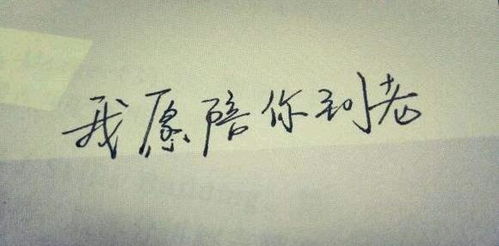 我愿陪你到老